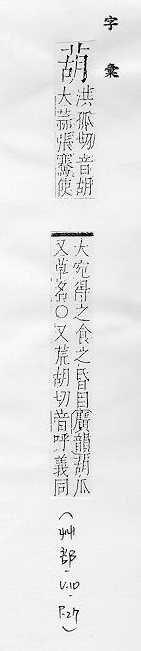 字彙
葫
洪孤切音胡
大蒜張騫使
大宛得之食之昏目廣韻葫瓜
又草名○又荒胡切音呼義同
(艸部-V.10-P.27)